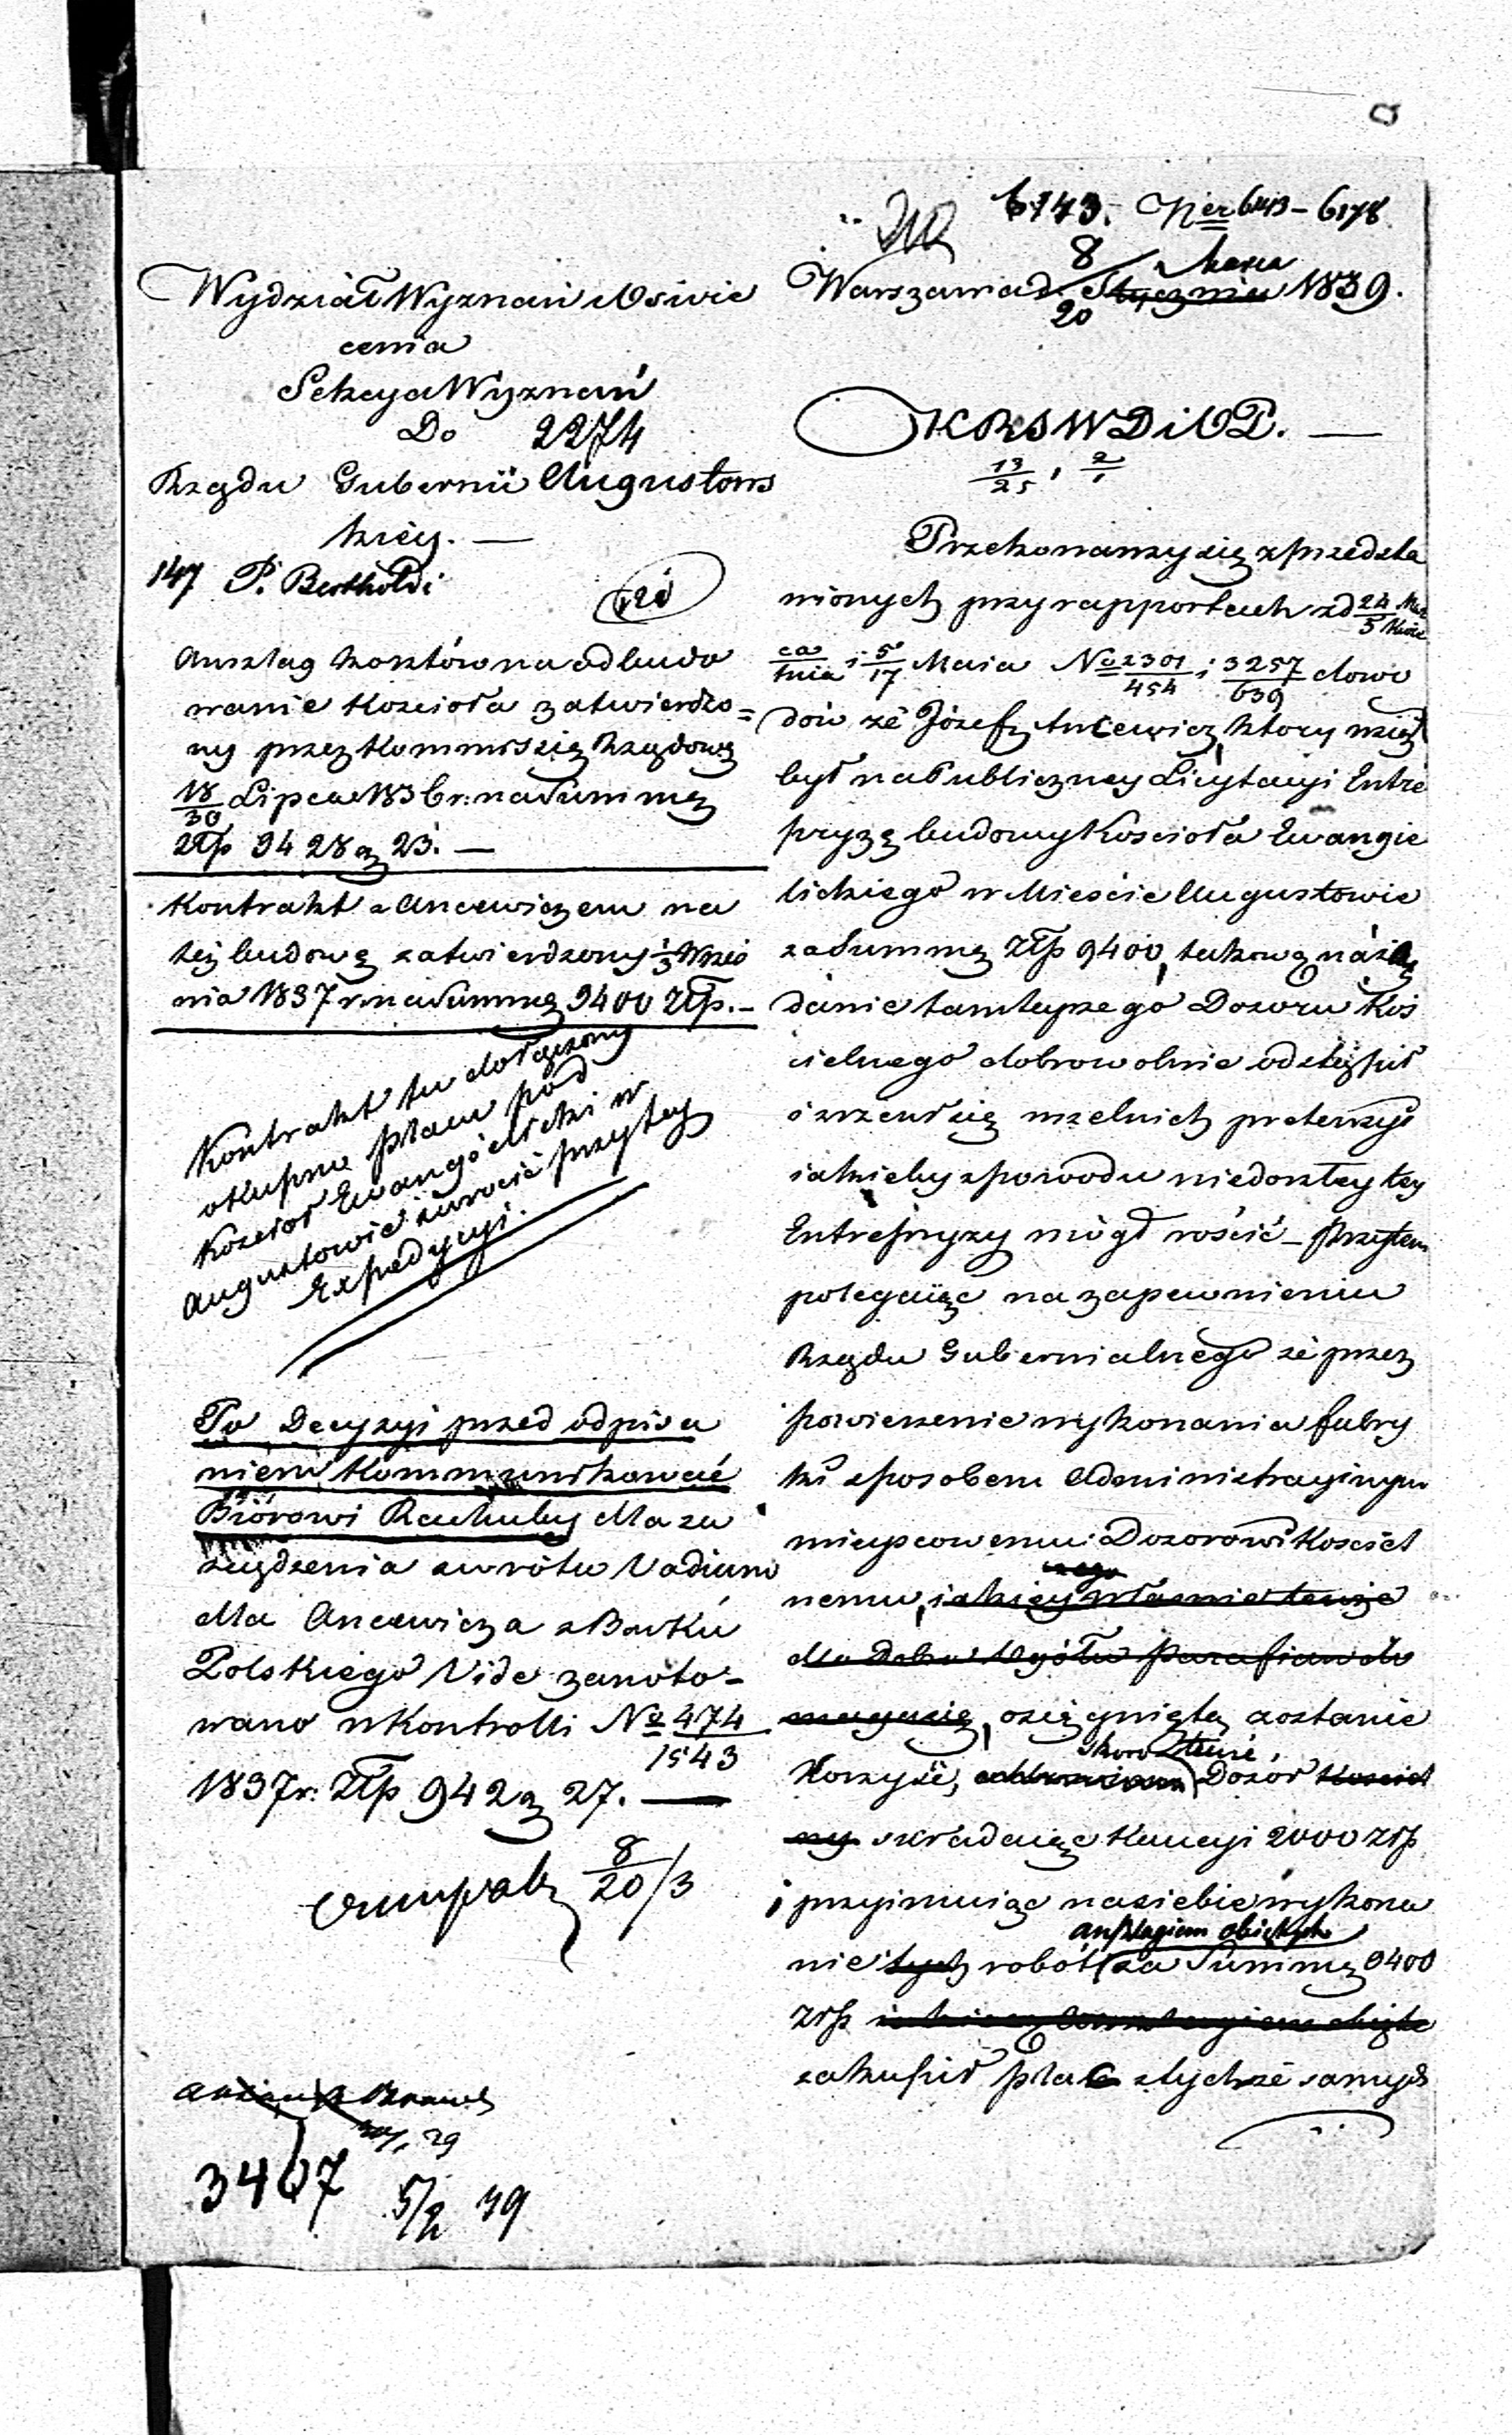 6143. Ner 6143 – 6178
Warszawa d. 8/20 Stycznia Marca 1839.
Wydział Wyznań i Oświe
cenia
Sekcya Wyznań
Do 2274
Rządu Gubernii Augustows
kiéy. —
147 P. Bertholdi
Anszlag kosztów na odbudo
wanie Kościoła zatwierdzo=
ny przez Kommissię Rządową
18/30 Lipca 1836 r: na Summę
Złp 9428 g 23. —
Kontrakt z Ancewiczem na
tęż budowę zatwierdzony 1/3 Wrześ
nia 1837 r. na Summę 9400 Złp. –
Kontrakt tu dołączony
okupno placu pod
Kościoł Ewangielicki w
Augustowie zwrocić przy tey
Expedycyi.
Tę Decyzyi przed odpisa
niem kommunikować
Biórowi Rachuby dla za
rządzenia zwrótu Vadium
dla Ancewicza z Banku
Polskiego Vide zanoto-
wano w Kontrolli No 474/1543
1837 r: Złp 942 g 27. —
8/20/3
3407 5/2 39
KRSWDiOP. —
13/25, 2/1
Przekonawszy się z przedsta
wionych przy rapportach z d 24/5 Mar/Kwie
ca/tnia i 5/17 Maia No 2301/454 i 3257/639 dowo
dów że Józef Ancewicz, ktory wziął
był na Publiczney Licytacyi Entre
pryzę budowy Kościoła Ewangie
lickiego w Mieście Augustowie
za Summę Złp 9400, takową na żą
danie tamteyszego Dozoru Koś
cielnego dobrowolnie odstąpił
i zrzekł się wszelkich pretensyi
iakieby z powodu niedoszłey tey
Entrepryzy mógł rościć – Przytem
polegaiąc na zapewnieniu
Rządu Gubernialnego że przez
powierzenie wykonania fabry
ki sposobem Administracyinym
mieyscowemu Dozorowi Kościel
nemu, iakiey własnie tenże
dla Dobra Ogółu Parafian do
maga się, osiągniętą zostanie
Korzyść, skoro tenże Dozor Kościel
ny składaiąc Kaucyi 2000 złp
i przyimuiąc na siebie wykona
nie tych robót anszlagiem obiętych za Summę 9400
złp
zakupił plac z tychże samych